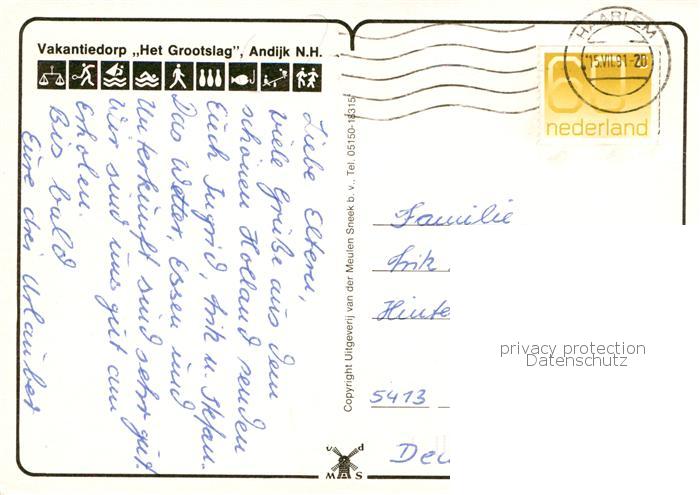 Vakantiedorp „Het Grootslag", Andijk N.H.
Liebe Eltern,
viele Grüße aus dem
schönen Holland senden
Euch Ingrid, Erik u. Stefan.
Das Wetter, Essen und
Unterkunft sind sehr gut.
Wir sind uns gut am
Erholen.
Bis bald
Eure drei Urlauber
Copyright Uitgeverij van der Meulen Sneek b.v., Tel. 05150-18315
HAARLEM
15.VII.91-20
60
nederland
Familie
Hinte
5413
Deu
privacy protection
Datenschutz
v d
M S